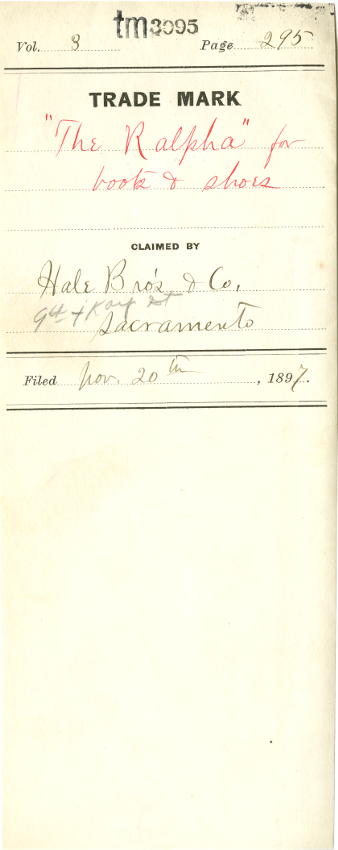 tm3095
Vol. 3 Page 295
TRADE MARK
"The Ralpha" for
boots & shoes
CLAIMED BY
Hale Bro's & Co.
9th & Kay St
Sacramento
Filed Nov. 20th, 1897.